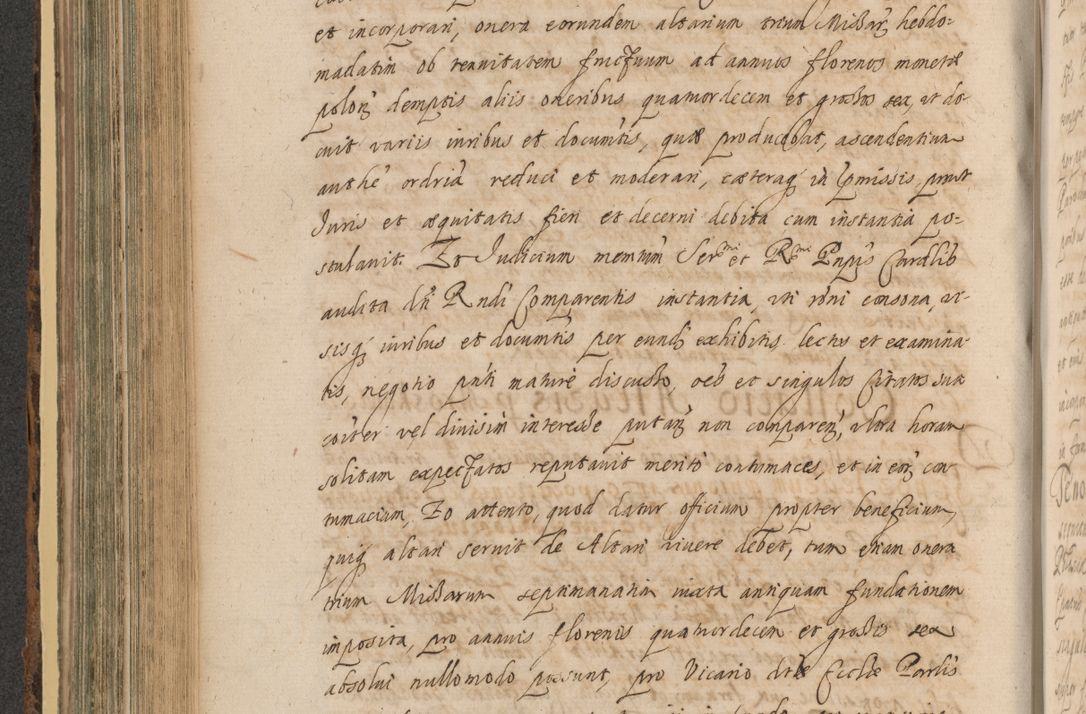 et incorporari, onera eorundem altarium trium Missarũ hebdo-
madatim ob tenuitatem fructuum ad annuos florenos monetæ
poloñ demptis aliis oneribus quatuordecem et grossos sex, ut do-
cuit variis iuribus et documtis, quæ producebat, ascendentium
authe ordria reduci et moderari, cæteraq in pmissis, prout
Iuris et æquitatis fieri et decerni debita cum instantia po-
stulavit. Et Iudicium memtum Ser mi et R mi Pnpis Cardlis
audita dñi Rndi Comparentis instantia, uti rõni consona, vi-
sisq iuribus et documtis per eund exhibitis lectis et examina-
tis, negotio pnti maturè discusso, oẽs et singulos Citatos sua
coiter vel divisim interesse putañ non compareñ, ultra horam
solitam expectatos reputavit meritò contumaces, et in eor con
tumaciam, Eo attento, quod datur officium propter beneficium,
quiq altari servit de Altari vivere debet, tum etiam onera
trium Missarum septimanatim iuxta antiquam fundationem
imposita, pro annuis florenis quatuordecem et grossis sex
absolui nullomodo possunt, pro Vicario dtæ Ecclæ Parlis